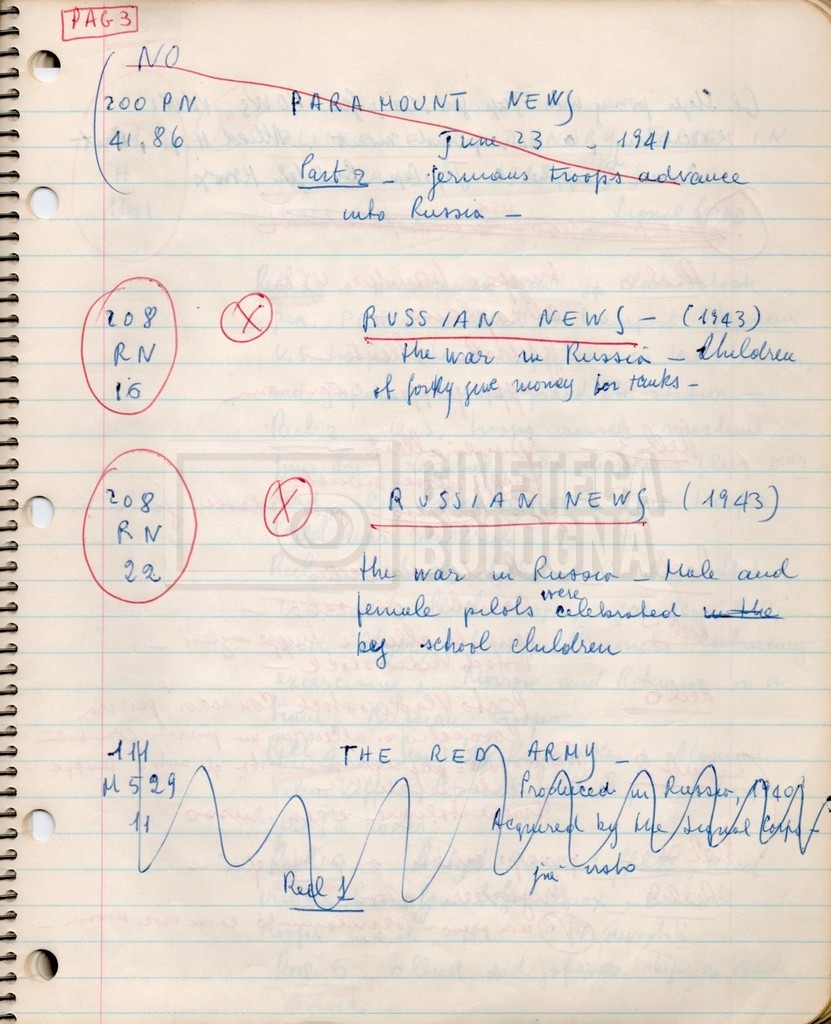 PAG 3
NO
200 PN PARAMOUNT NEWS
41,86 June 23 - 1941
Part 2 - germans troops advance
into Russia -
208 X RUSSIAN NEWS - (1943)
RN the war in Russia - Children
16 of give money for tanks -
CINETECA
BOLOGNA
208 X RUSSIAN NEWS (1943)
RN
22 the war in Russia - Male and
female pilots were celebrated in the
by school children
111 THE RED ARMY -
M 529 Produced in Russia, 1940
11 Acquired by the Signal Corps -
già visto
Reel 1